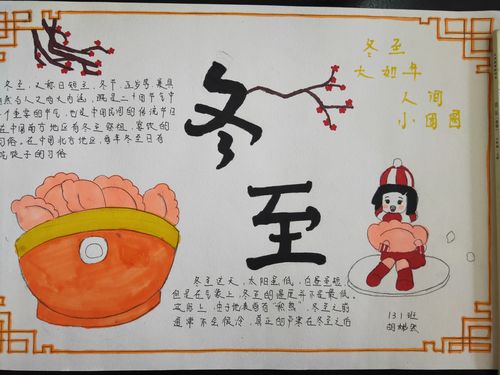 冬至
冬至
大如年
人间
小团圆
冬至，又称日短至、冬节、亚岁等，兼具
自然与人文两大内涵，既是二十四节气中
一个重要的节气，也是中国民间的传统节日
在中国南方地区有冬至祭祖、宴饮的
习俗。在中国北方地区，每年冬至日有
吃饺子的习俗
冬至这天，太阳虽低，白昼虽短
但是在气象上，冬至的温度并不是最低。
实际上，由于地表尚有“积热”，冬至之前
通常不会很冷，真正的严寒在冬至之后
131班